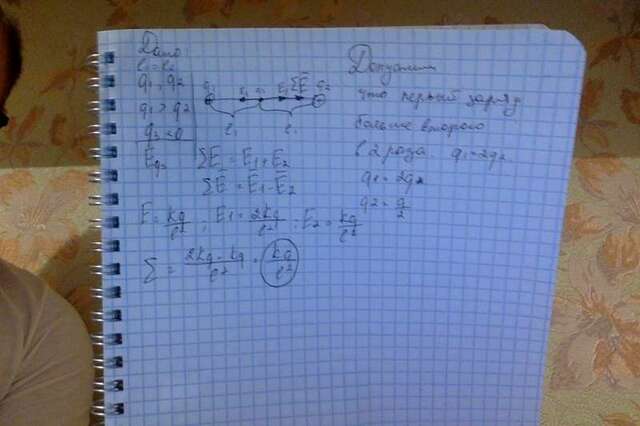 Дано:
l₁ = l₂
q₁, q₂
q₁ > q₂
q₂ < 0
E
q₁ E₁ ΣE̅ q₂
l₁ l₂
ΣE = E₁ + E₂
ΣE̅ = E̅₁ - E̅₂
E = kq/l²; E₁ = 2kq/l²; E₂ = kq/l²
Σ = 2kq - kq/l² = kq/l²
Допустим
что первый заряд
больше второго
в 2 раза. q₁ = 2q₂
q₁ = 2q₂
q₂ = q/2